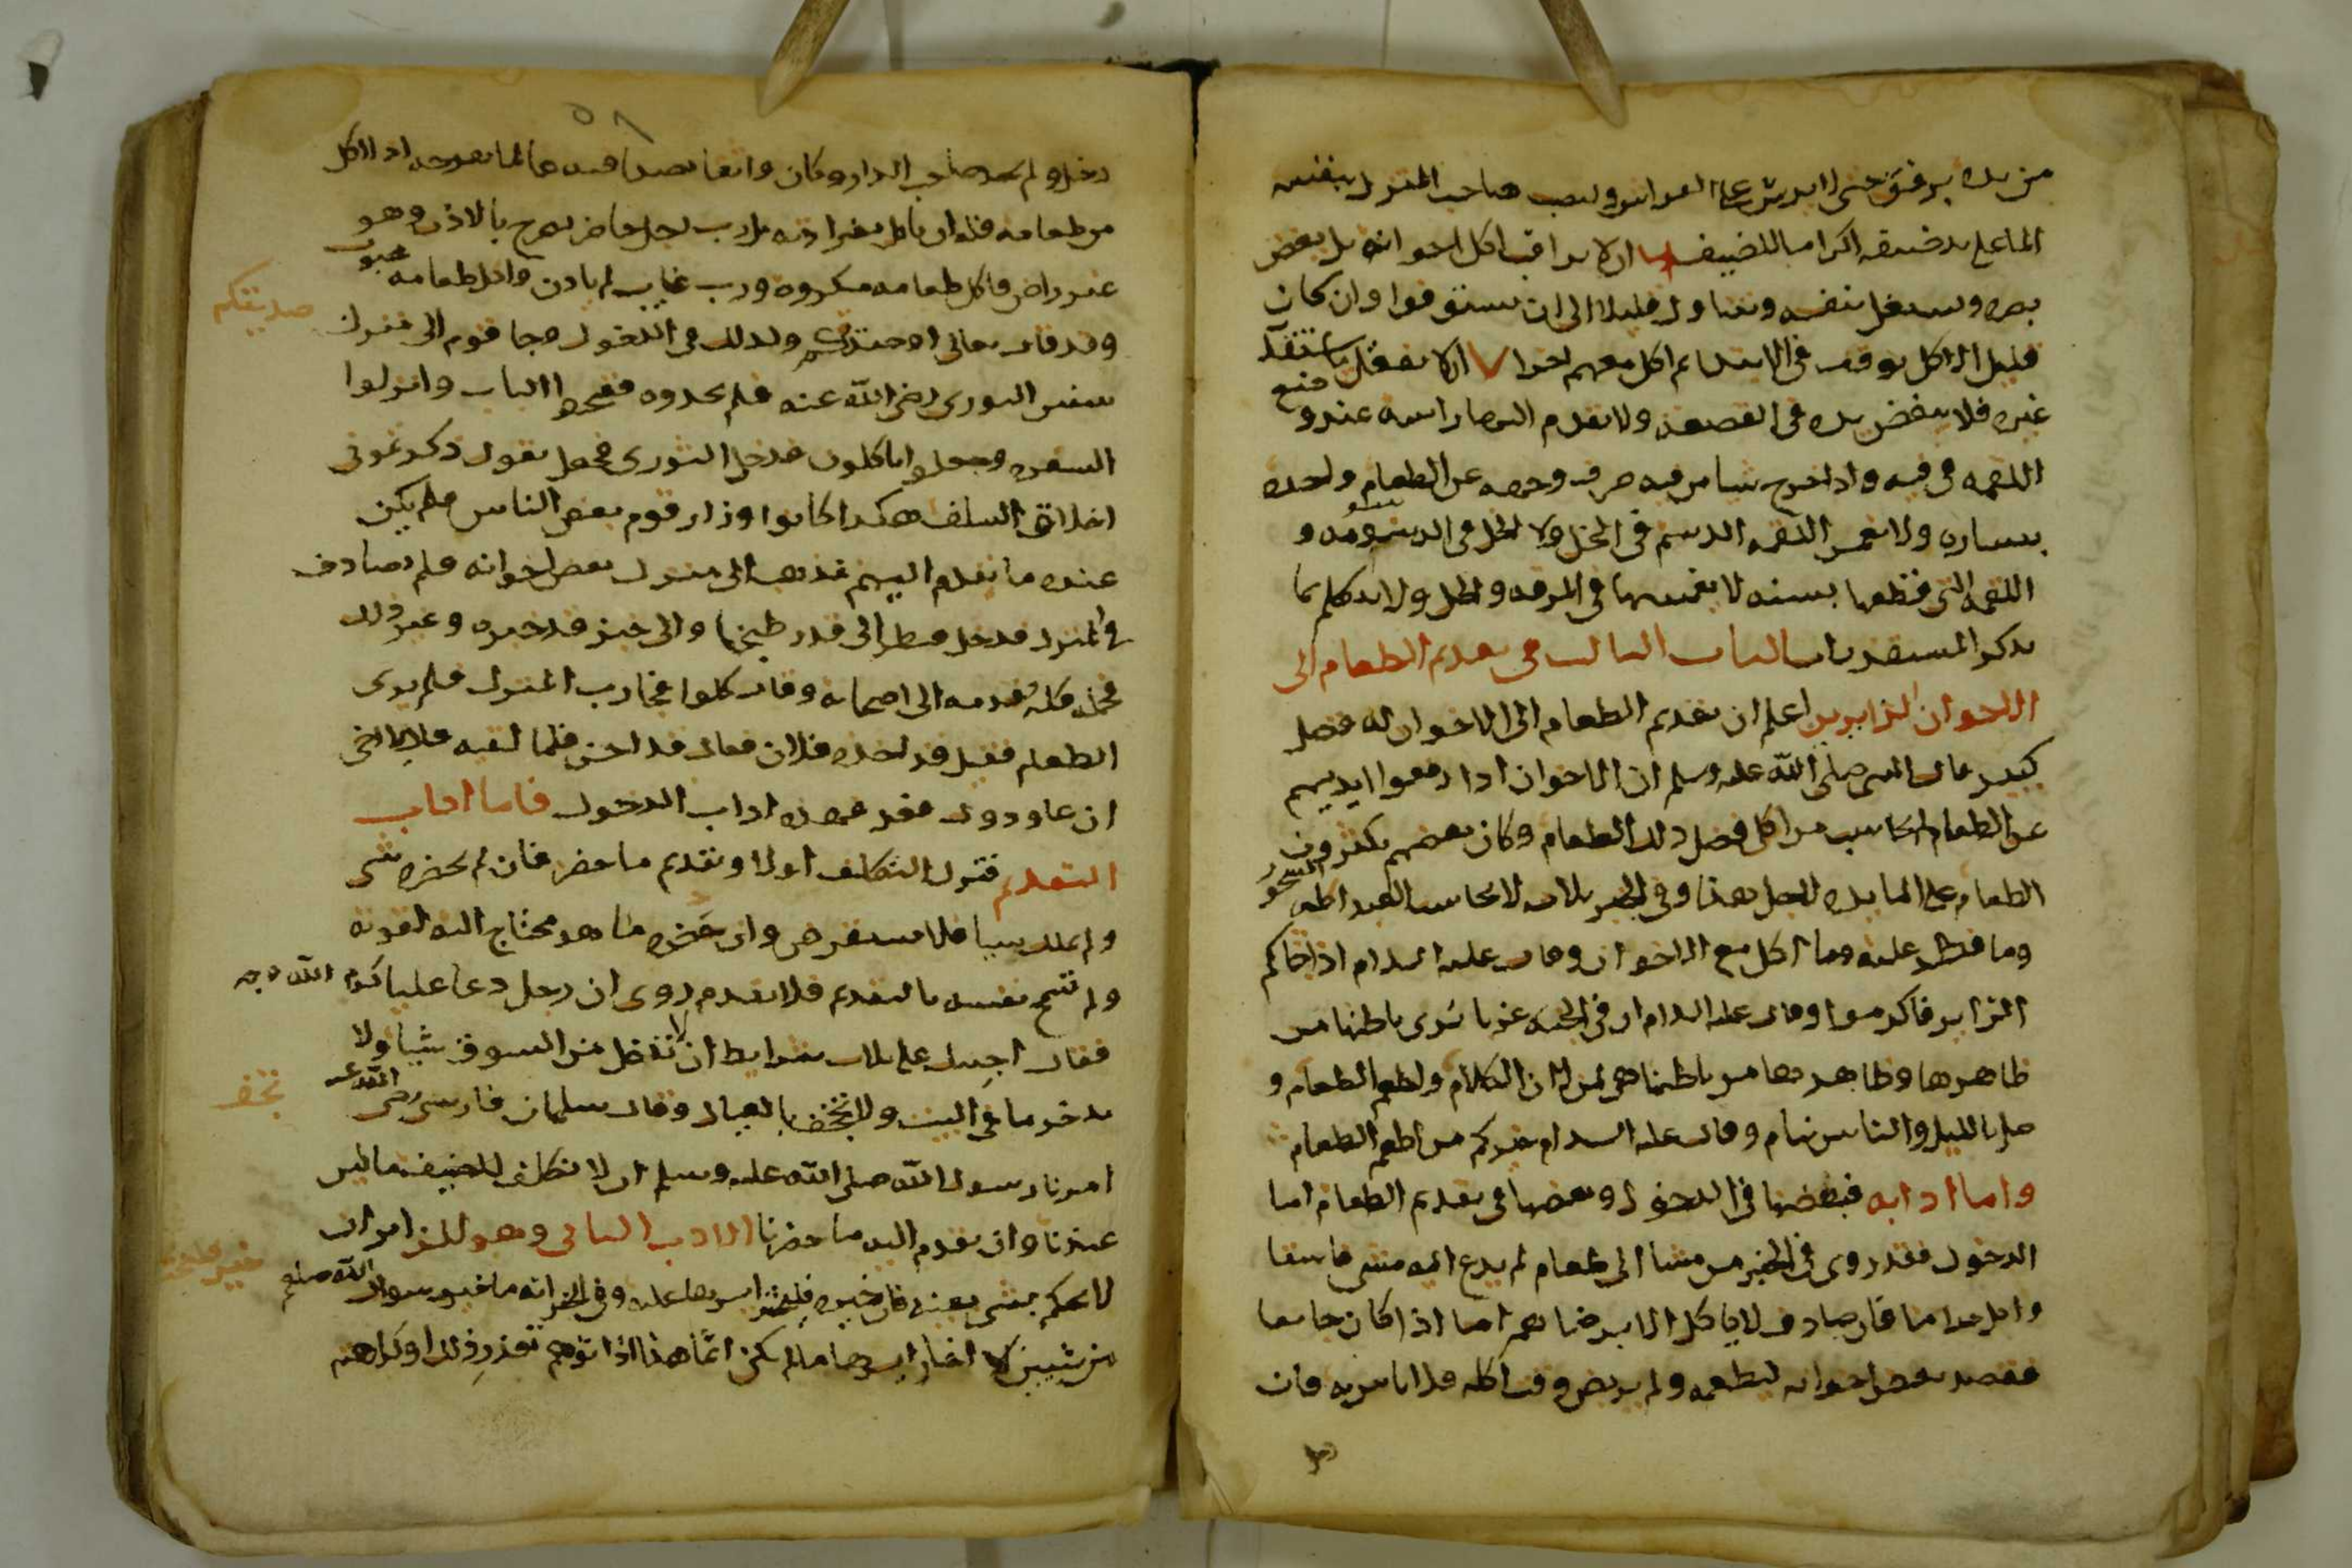 من يده برفق حتى لا يرش على الفراش وليصب صاحب المنزل بنفسه
الماء على يد ضيفه اكراما للضيف ان لا يراقب اكل اخوانه بل يغض
بصره ويشتغل بنفسه ويتناول قليلا الى ان يستوفوا وان كان
قليل الاكل توقف فى الابتداء ثم اكل معهم اخرا ٧ ان لا يفعل ما يستقذر
غيره فلا ينفض يده فى القصعة ولا يقدم اليها راسه عند وضع
اللقمه فى فيه واذا اخرج شيا من فيه صرف وجهه عن الطعام واخذه
بيساره ولا يغمس اللقمه الدسم فى الخل ولا الخل فى الدسومه و
اللقمة التى قطعها بسنه لا يغمسها فى المرقه والخل ولا يتكلم بما
يذكر المستقذرات الباب الثالث فى تقديم الطعام الى
الاخوان الزايرين اعلم ان تقديم الطعام الى الاخوان له فضل
كبير قال النبى صلى الله عليه وسلم ان الاخوان اذا رفعوا ايديهم
عن الطعام لم يحاسب من اكل فضل ذلك الطعام وكان بعضهم يكثرون
الطعام على المايده لاجل هذا وفى الخبر ثلاث لا يحاسب العبد اكلة السحور
وما فطر عليه وما اكل مع الاخوان وقال عليه السلام اذا جاكم
الزاير فاكرموا وقال عليه السلام ان فى الجنه غرفا يرى باطنها من
ظاهرها وظاهرها من باطنها هى لمن الان الكلام واطعم الطعام و
صلى بالليل والناس نيام وقال عليه السلام خيركم من اطعم الطعام
واما ادابه فبعضها فى الدخول وبعضها فى تقديم الطعام اما
الدخول فقد روى فى الخبر من مشا الى طعام لم يدع اليه مشى فاسقا
واكل حراما فان صادف لا ياكل الا برضاهم اما اذا كان جايعا
فقصد بعض اخوانه ليطعمه ولم يتربص وقت اكله فلا باس به فان
٥٨
دخل ولم يجد صاحب الدار وكان واثقا بصداقته عالما بفرحه اذا اكل
من طعامه فله ان ياكل بغير اذنه بل رب رجل حاضر يصرح بالاذن وهو
غير راض فاكل طعامه مكروه ورب غايب لم ياذن واكل طعامه محبوب
وقد قال تعالى او صديقكم وكذلك فى الدخول وجا قوم الى منزل
صديقكم
سفين الثورى رضى الله عنه فلم يجدوه ففتحوا الباب وانزلوا
السفره وجعلوا ياكلون فدخل الثورى فجعل يقول ذكرتمونى
اخلاق السلف هكذا كانوا وزار قوم بعض الناس فلم يكن
عنده ما يقدم اليهم فذهب الى منزل بعض اخوانه فلم يصادفه
فى المنزل فدخل فنظر الى قدر طبخها والى خبز قد خبزه وغير ذلك
فحمله كله فقدمه الى اصحابه وقال كلوا فجا رب المنزل فلم يرى
الطعام فقيل قد اخذه فلان فقال قد احسن فلما لقيه قال يا اخى
ان عاودوك فعد فهذه اداب الدخول فاما اداب
التقديم فترك التكلف اولا وتقديم ما حضر فان لم يحضره شى
ولم يملك شيا فلا يستقرض وان حضره ما هو محتاج اليه لقوته
ولم تسمح نفسه بالتقديم فلا يقدم روى ان رجل دعا عليا كرم الله وجهه
فقال اجيبك على ثلاث شرايط ان لا تدخل من السوق شيا ولا
تدخر ما فى البيت ولا تجحف بالعيال وقال سلمان فارسى رضى الله عنه
تجحف
امرنا رسول الله صلى الله عليه وسلم ان لا نتكلف للضيف ما ليس
عندنا وان نقدم اليه ما حضرنا الادب الثانى وهو للزاير ان
لا يحكم بشى بعينه فان خيره فليختر ايسرهما عليه وفى الخبر انه ما خير رسول الله صلعم
بين شيين الا اختار ايسرهما ما لم يكن اثما هذا اذا توهم تعذر ذلك او كراهته